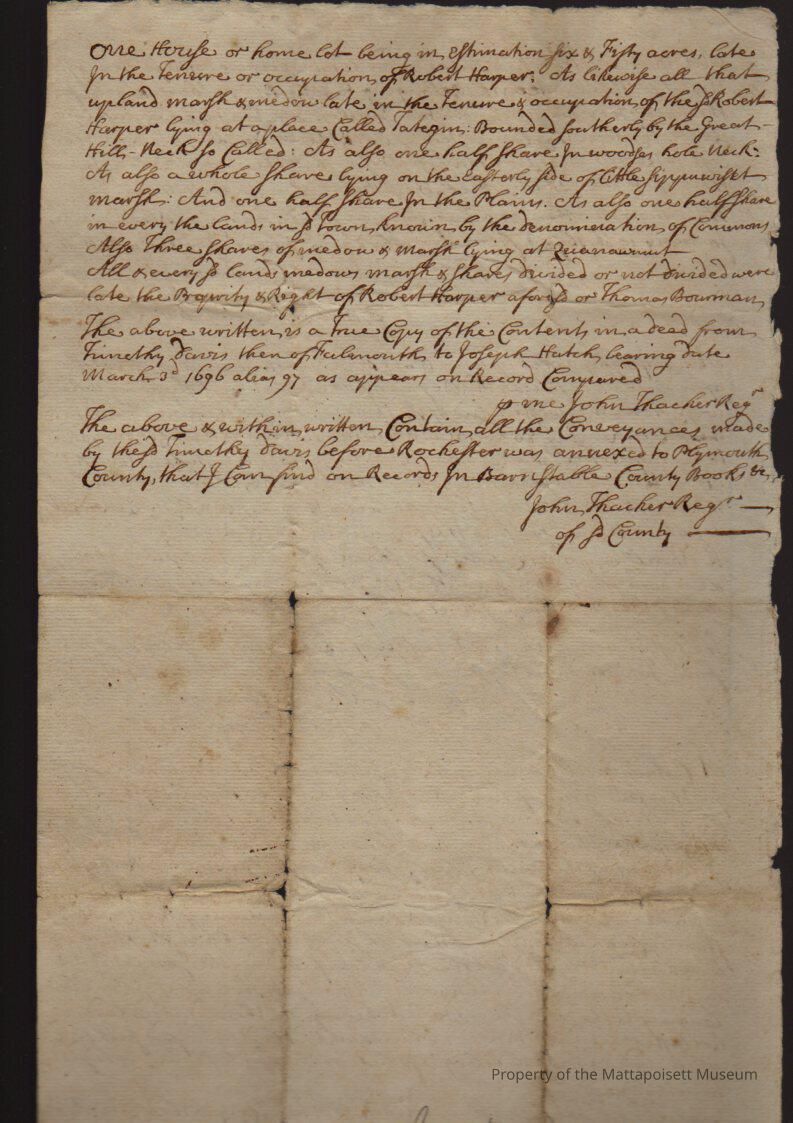 One House or home lot being in Estimation six & Fifty acres, late
In the Tenure or occupation of Robert Harper: As likewise all that
upland marsh & medow late in the Tenure & occupation of the sd Robert
Harper lying at a place Called Tategin: Bounded southerly by the Great
Hill-Neck so Called: As also one half share In woodses hole Neck:
As also a whole share lying on the easterly side of little sippuwisset
marsh: And one half share In the Plains. As also one half share
in every the lands in sd Town known by the denomination of Commons
Also Three shares of medow & marsh lying at
All & every sd lands medows marsh & shares divided or not divided were
late the & Right of Robert Harper aforesd or Thomas Bowrman
The above written is a True Copy of the Contents in a dead from
Timothy Davis then of Falmouth to Joseph Hatch bearing date
March 3d 1696 alias 97 as appears on Record Compared
p me John Thacher Regr
The above & within written Contain all the Conveyances made
by the sd Timothy Davis before Rochester was annexed to Plymouth
County, that I Can find on Records In Barnstable County Books &c
John Thacher Regr
of sd County
Property of the Mattapoisett Museum